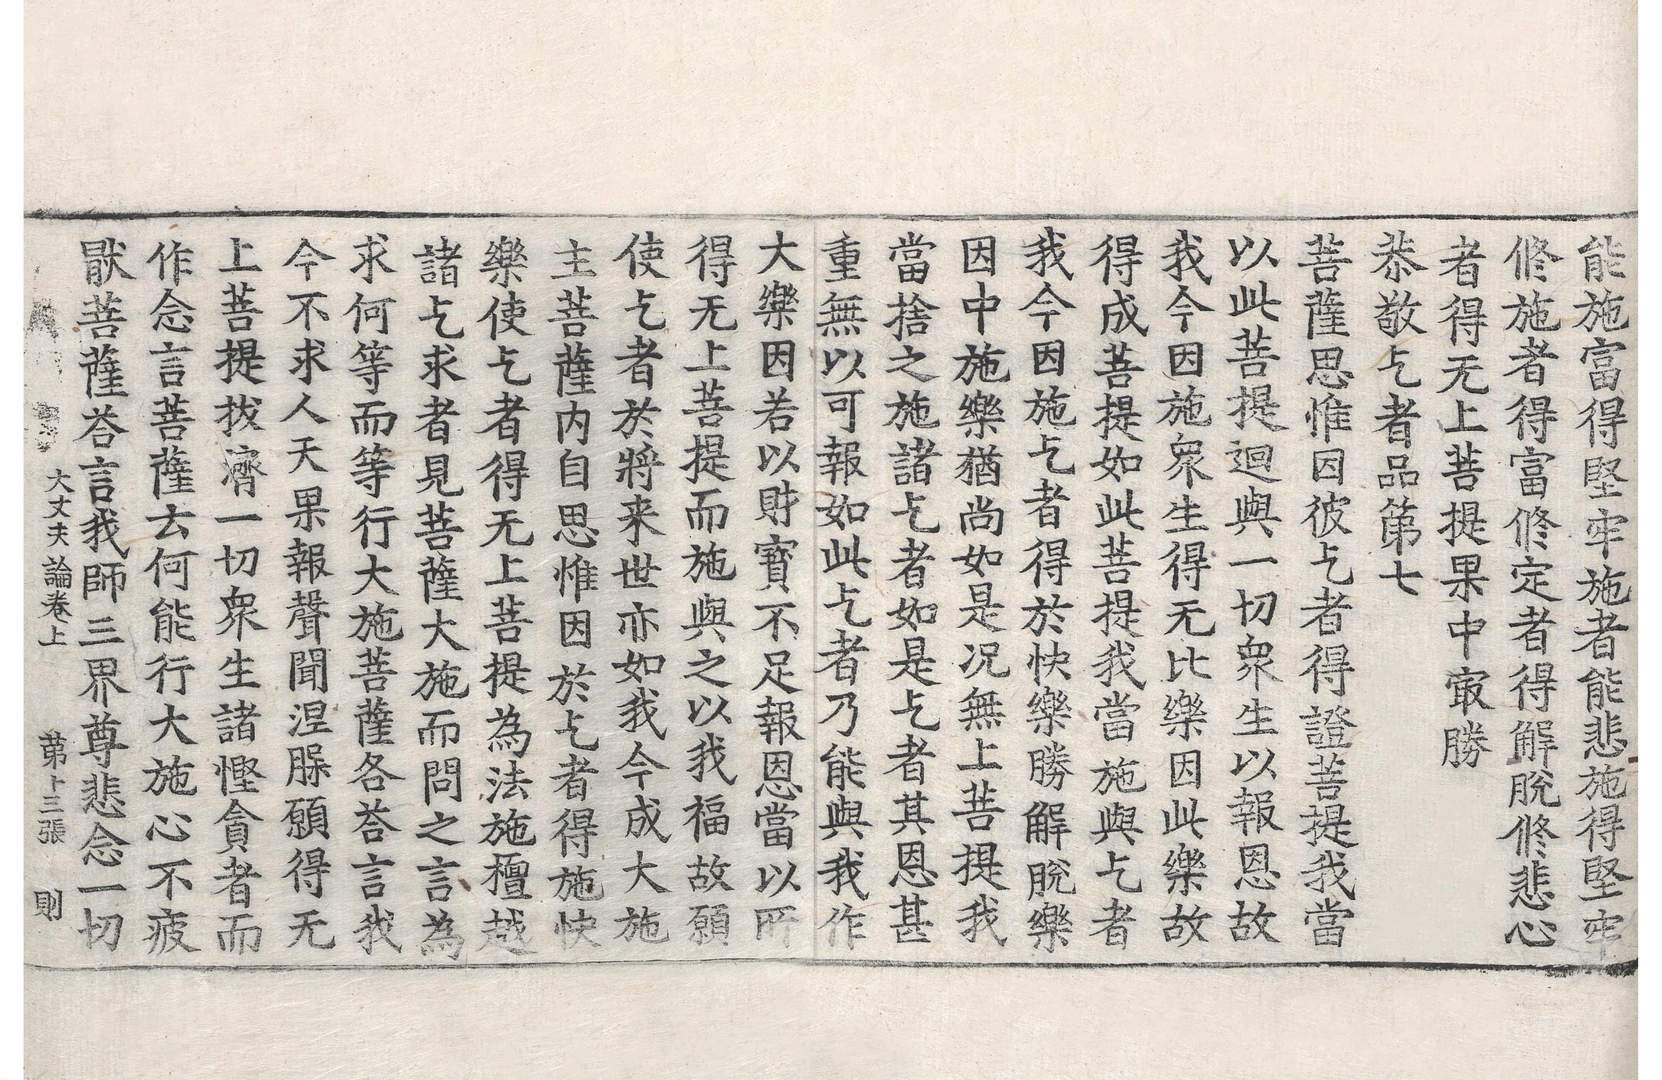 能施富得堅牢施者能悲施得堅牢
修施者得富修定者得解脫修悲心
者得无上菩提果中㝡勝
恭敬乞者品第七
菩薩思惟因彼乞者得證菩提我當
以此菩提迴與一切衆生以報恩故
我今因施衆生得无比樂因此樂故
得成菩提如此菩提我當施與乞者
我今因施乞者得於快樂勝解脫樂
因中施樂猶尚如是況無上菩提我
當捨之施諸乞者如是乞者其恩甚
重無以可報如此乞者乃能與我作
大樂因若以財寶不足報恩當以所
得无上菩提而施與之以我福故願
使乞者於將来世亦如我今成大施
主菩薩內自思惟因於乞者得施快
樂使乞者得无上菩提為法施檀越
諸乞求者見菩薩大施而問之言為
求何等而等行大施菩薩各荅言我
今不求人天果報聲聞涅槃願得无
上菩提拔濟一切衆生諸慳貪者而
作念言菩薩云何能行大施心不疲
猒菩薩荅言我師三界尊悲念一切
大丈夫論卷上 第十三張 則